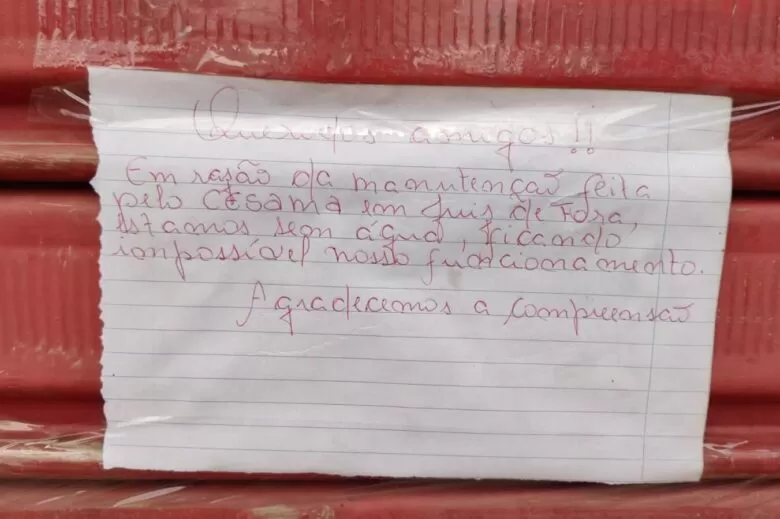 Queridos amigos!!
Em razão da manutenção feita
pelo CESAMA em Juis de Fora,
Estamos sem água, ficando
impossível nosso funcionamento.
Agradecemos a compreensão